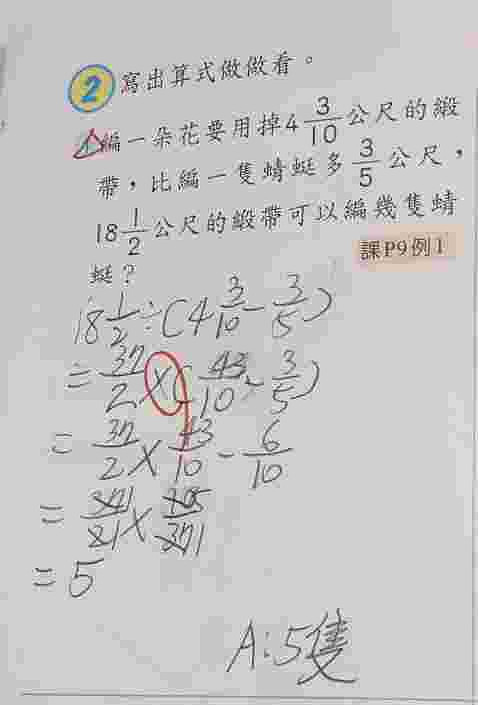 2 寫出算式做做看。
1. 編一朵花要用掉4 3/10 公尺的緞
帶，比編一隻蜻蜓多 3/5 公尺，
18 1/2 公尺的緞帶可以編幾隻蜻
蜓？
課P9例1
18 1/2 ÷ (4 3/10 - 3/5)
= 37/2 × (43/10 - 3/5)
= 37/2 × 43/10 - 6/10
= 37 1/2 1 × 10 5/37 1
= 5
A:5隻